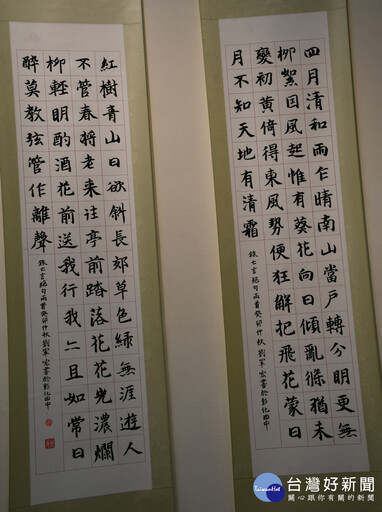 四月清和雨乍晴南山當戶轉分明更無
柳絮因風起惟有葵花向日傾亂條猶未
變初黃倚得東風勢便狂解把飛花蒙日
月不知天地有清霜
錄七言絕句兩首癸卯仲秋劉軍宏書於彰化田中
紅樹青山日欲斜長郊草色綠無涯遊人
不管春將老來往亭前踏落花花光濃爛
柳輕明酌酒花前送我行我亦且如常日
醉莫教弦管作離聲
錄七言絕句兩首癸卯仲秋劉軍宏書於彰化田中
Taiwanhot
台灣好新聞
關心跟你有關的新聞